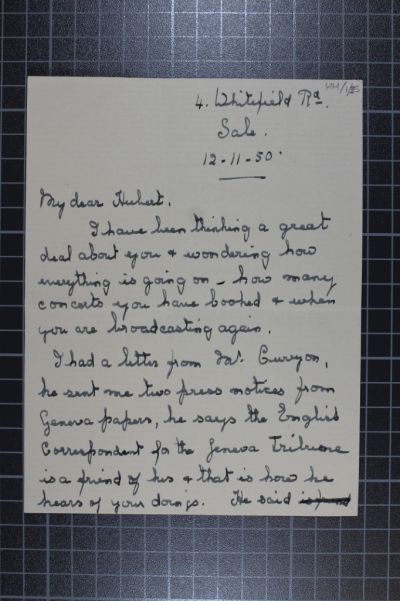 HH/1/85
4. Whitefield Rd.
Sale.
12-11-50.
My dear Hubert,
I have been thinking a great
deal about you & wondering how
everything is going on - how many
concerts you have booked & when
you are broadcasting again.
I had a letter from Mr. Cureyon,
he sent me two press notices from
Geneva papers, he says the English
Correspondent for the Geneva Tribune
is a friend of his & that is how he
hears of your doings. He said